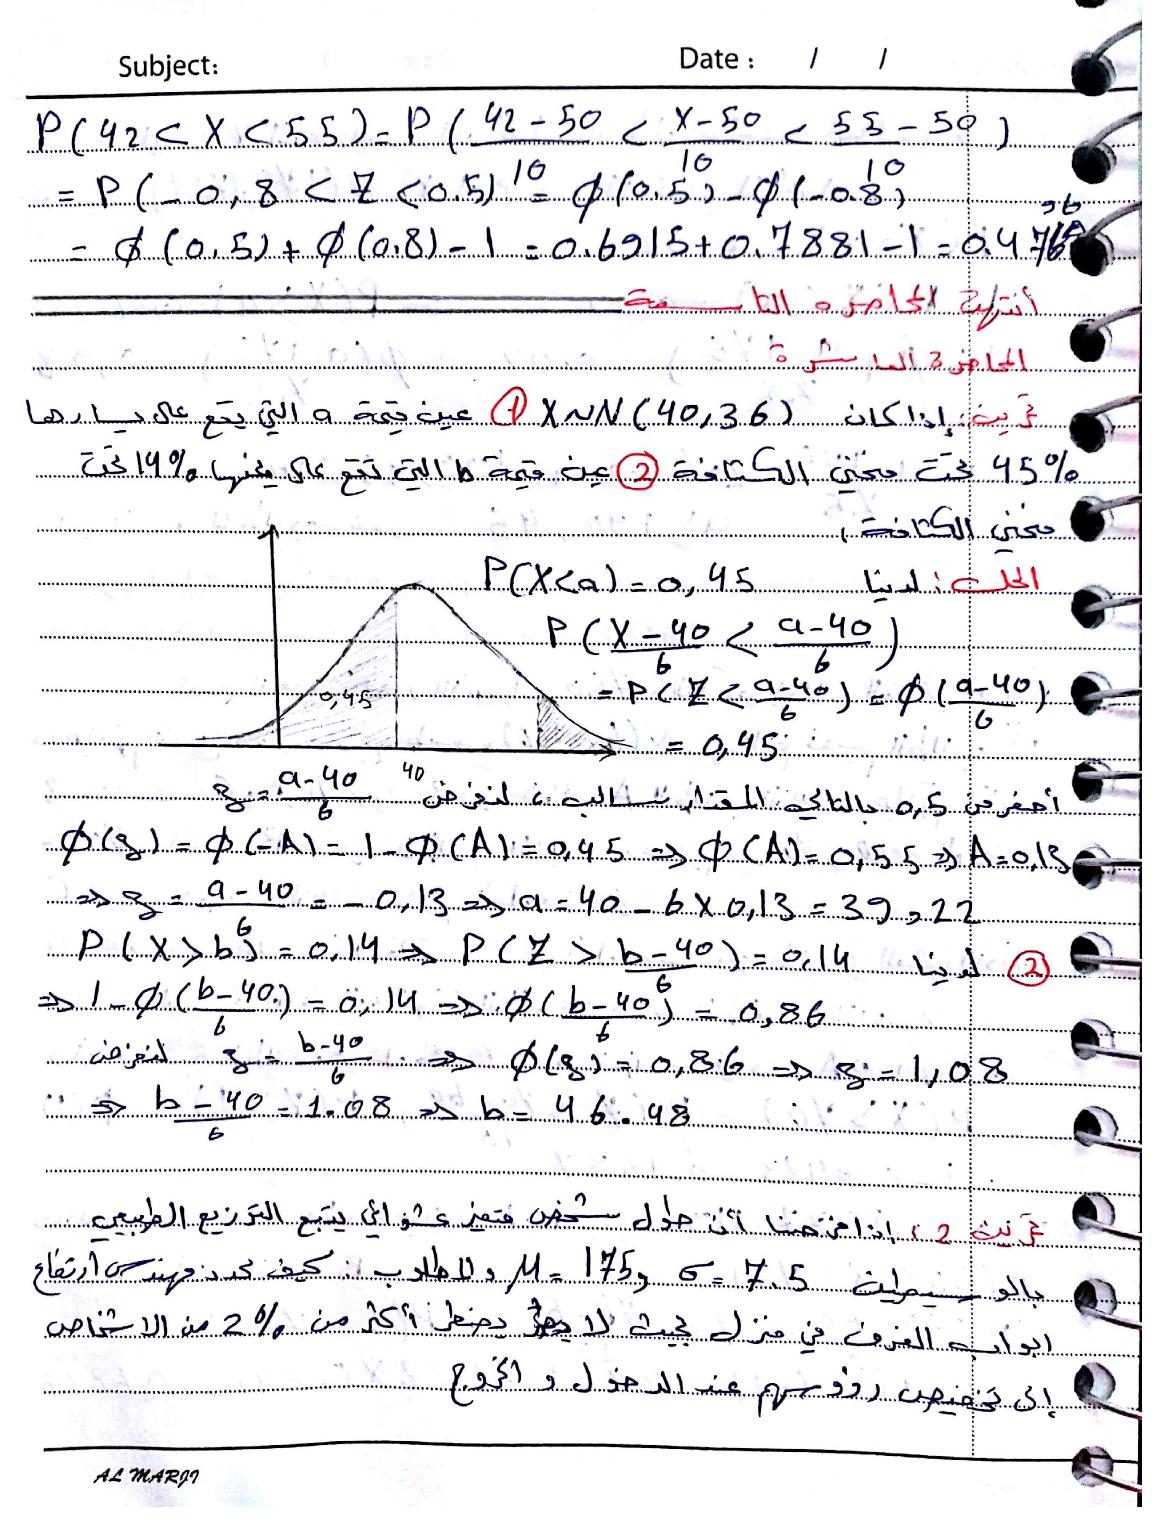 Subject: Date : / /
P(42 < X < 55) = P(42-50/10 < X-50/10 < 55-50/10)
= P(-0,8 < Z < 0.5) = φ(0.5) - φ(-0.8)
= φ(0.5) + φ(0.8) - 1 = 0.6915 + 0.7881 - 1 = 0.4796
أنتهت المحاضرة التاسعة
المحاضرة العاشرة
تمرين: إذا كان X~N(40,36) ① عين قيمة a التي يقع على يسارها
45% تحت منحني الكثافة ② عين قيمة b التي تقع على يمينها 14% تحت
منحني الكثافة،
الحل: لدينا P(X<a)=0,45
P(X-40/6 < a-40/6)
= P(Z < a-40/6) = φ(a-40/6)
0,45
= 0,45
40
أصغر من 0,5 بالتالي المقدار سالب، لنفرض z = a-40/6
φ(z) = φ(-A) = 1-φ(A) = 0,45 ⇒ φ(A) = 0,55 ⇒ A=0,13
⇒ z = a-40/6 = -0,13 ⇒ a = 40 - 6×0,13 = 39,22
② لدينا P(X>b) = 0,14 ⇒ P(Z > b-40/6) = 0,14
⇒ 1-φ(b-40/6) = 0,14 ⇒ φ(b-40/6) = 0,86
لنفرض z = b-40/6 ⇒ φ(z) = 0,86 ⇒ z = 1,08
⇒ b-40/6 = 1.08 ⇒ b = 46.48
تمرين 2، إذا فرضنا أن طول شخص متغير عشوائي يتبع التوزيع الطبيعي
بالوسيطين σ = 7.5 و μ = 175 والمطلوب: كيف يحدد مهندس ارتفاع
ابواب الغرف في منزل بحيث لا يضطر أكثر من 2% من الاشخاص
إلى تخفيض رؤوسهم عند الدخول و الخروج
AL MARJI